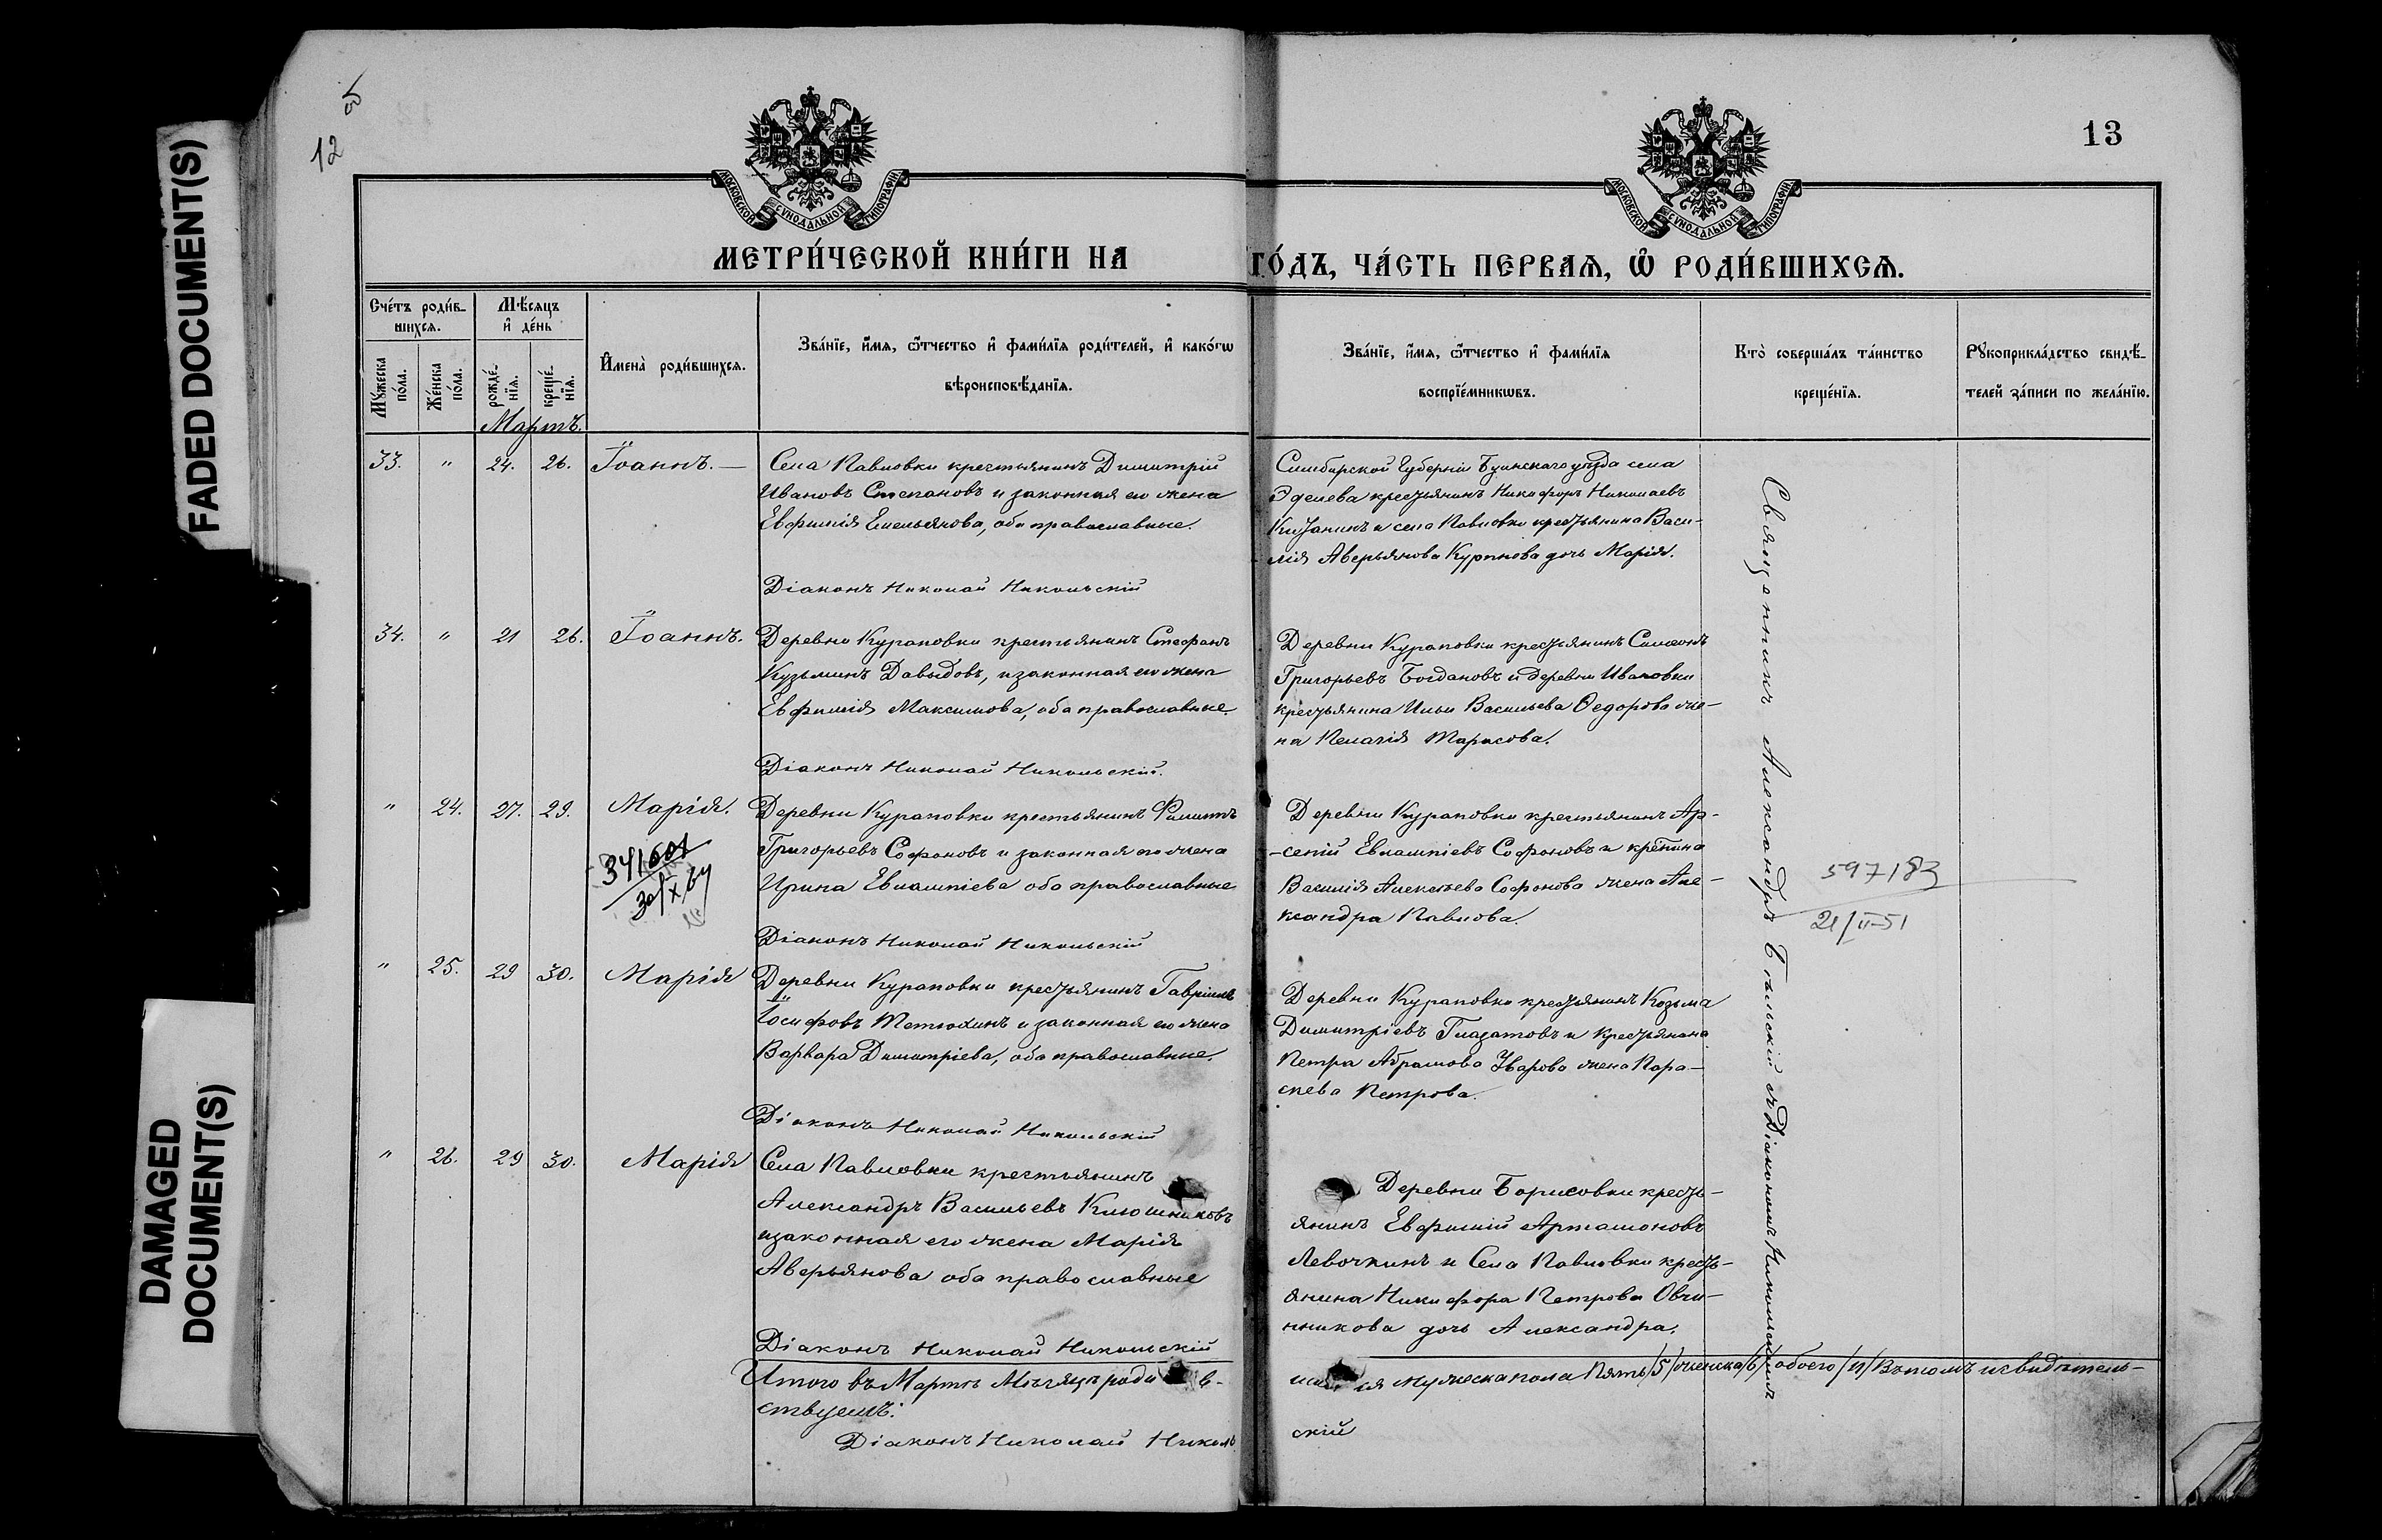 FADED DOCUMENT(S)
DAMAGED
DOCUMENT(S)
12 об
13
МОСКОВСКОЙ СУНОДАЛЬНОЙ ТИПОГРАФІИ
МОСКОВСКОЙ СУНОДАЛЬНОЙ ТИПОГРАФІИ
МЕТРИ́ЧЕСКОЙ КНИ́ГИ НА
ГО́ДЪ, ЧА́СТЬ ПЕРВАЯ, Ѽ РОДИ́ВШИХСЯ.
Сче́тъ роди́в-
шихся.
Мꙋ́жеска
по́ла.
Же́нска
по́ла.
Мѣ́сяцъ
и҆ де́нь
рожде́-
нїя.
креще́-
нїя.
Мартъ.
И҆мена̀ роди́вшихся.
Зва́нїе, и҆́мя, ѻ҆́тчество и҆ фами́лїя роди́телей, и҆ како́гѡ
вѣроисповѣ́данїя.
Зва́нїе, и҆́мя, ѻ҆́тчество и҆ фами́лїя
воспрїе́мникѡвъ.
Кто̀ соверша́лъ та́инство
креще́нїя.
Рꙋкоприкла́дство свидѣ́-
телей за́писи по жела́нїю.
33. " 24. 26. Іоаннъ. —
Села Павловки крестьянинъ Димитрій
Ивановъ Степановъ и законная его жена
Евфимія Емельянова, оба православные.
Діаконъ Николай Никольскій
Симбирской Губерніи Буинскаго уѣзда села
Эделева крестьянинъ Никифоръ Николаевъ
и села Павловки крестьянина Васи-
лія Аверьянова дочь Марія.
34. " 21 26. Іоаннъ.
Деревни Кураповки крестьянинъ Стефанъ
Кузьминъ Давыдовъ, и законная его жена
Евфимія Максимова, оба православные.
Діаконъ Николай Никольскій.
Деревни Кураповки крестьянинъ Симеонъ
Григорьевъ Богдановъ и деревни Ивановки
крестьянина Ильи Васильева Ѳедорова же-
на Пелагія Тарасова.
" 24. 27. 29. Марія.
Деревни Кураповки крестьянинъ Филиппъ
Григорьевъ Софоновъ и законная его жена
Ирина Евлампіева оба православные
Діаконъ Николай Никольскій
Деревни Кураповки крестьянинъ Ар-
-сеній Евлампіевъ Софоновъ и крестьянина
Василія Алексѣева Софонова жена Але-
ксандра Павлова.
597183
21/II-51
" 25. 29 30. Марія
Деревни Кураповки крестьянинъ Гавріилъ
Іосифовъ Тетюхинъ и законная его жена
Варвара Димитріева, оба православные.
Діаконъ Николай Никольскій
Деревни Кураповки крестьянинъ Козьма
Димитріевъ и крестьянина
Петра Абрамова Уварова жена Пара-
скева Петрова.
" 26. 29 30. Марія
Села Павловки крестьянинъ
Александръ Васильевъ Ключниковъ
и законная его жена Марія
Аверьянова оба православные
Діаконъ Николай Никольскій
Деревни Борисовки кресть-
янинъ Евфимій Артамоновъ
Левочкинъ и Села Павловки кресть-
янина Никифора Петрова Овчи-
нникова дочь Александра.
Священникъ Александръ Бѣльскій съ Діакономъ Никольскимъ
Итого въ Мартѣ Мѣсяцѣ роди в-
ся мужеска пола Пять /5/ женска /6/ обоего /11/ Въ томъ и свидѣтель-
ствуемъ:
Діаконъ Николай Николь
скій